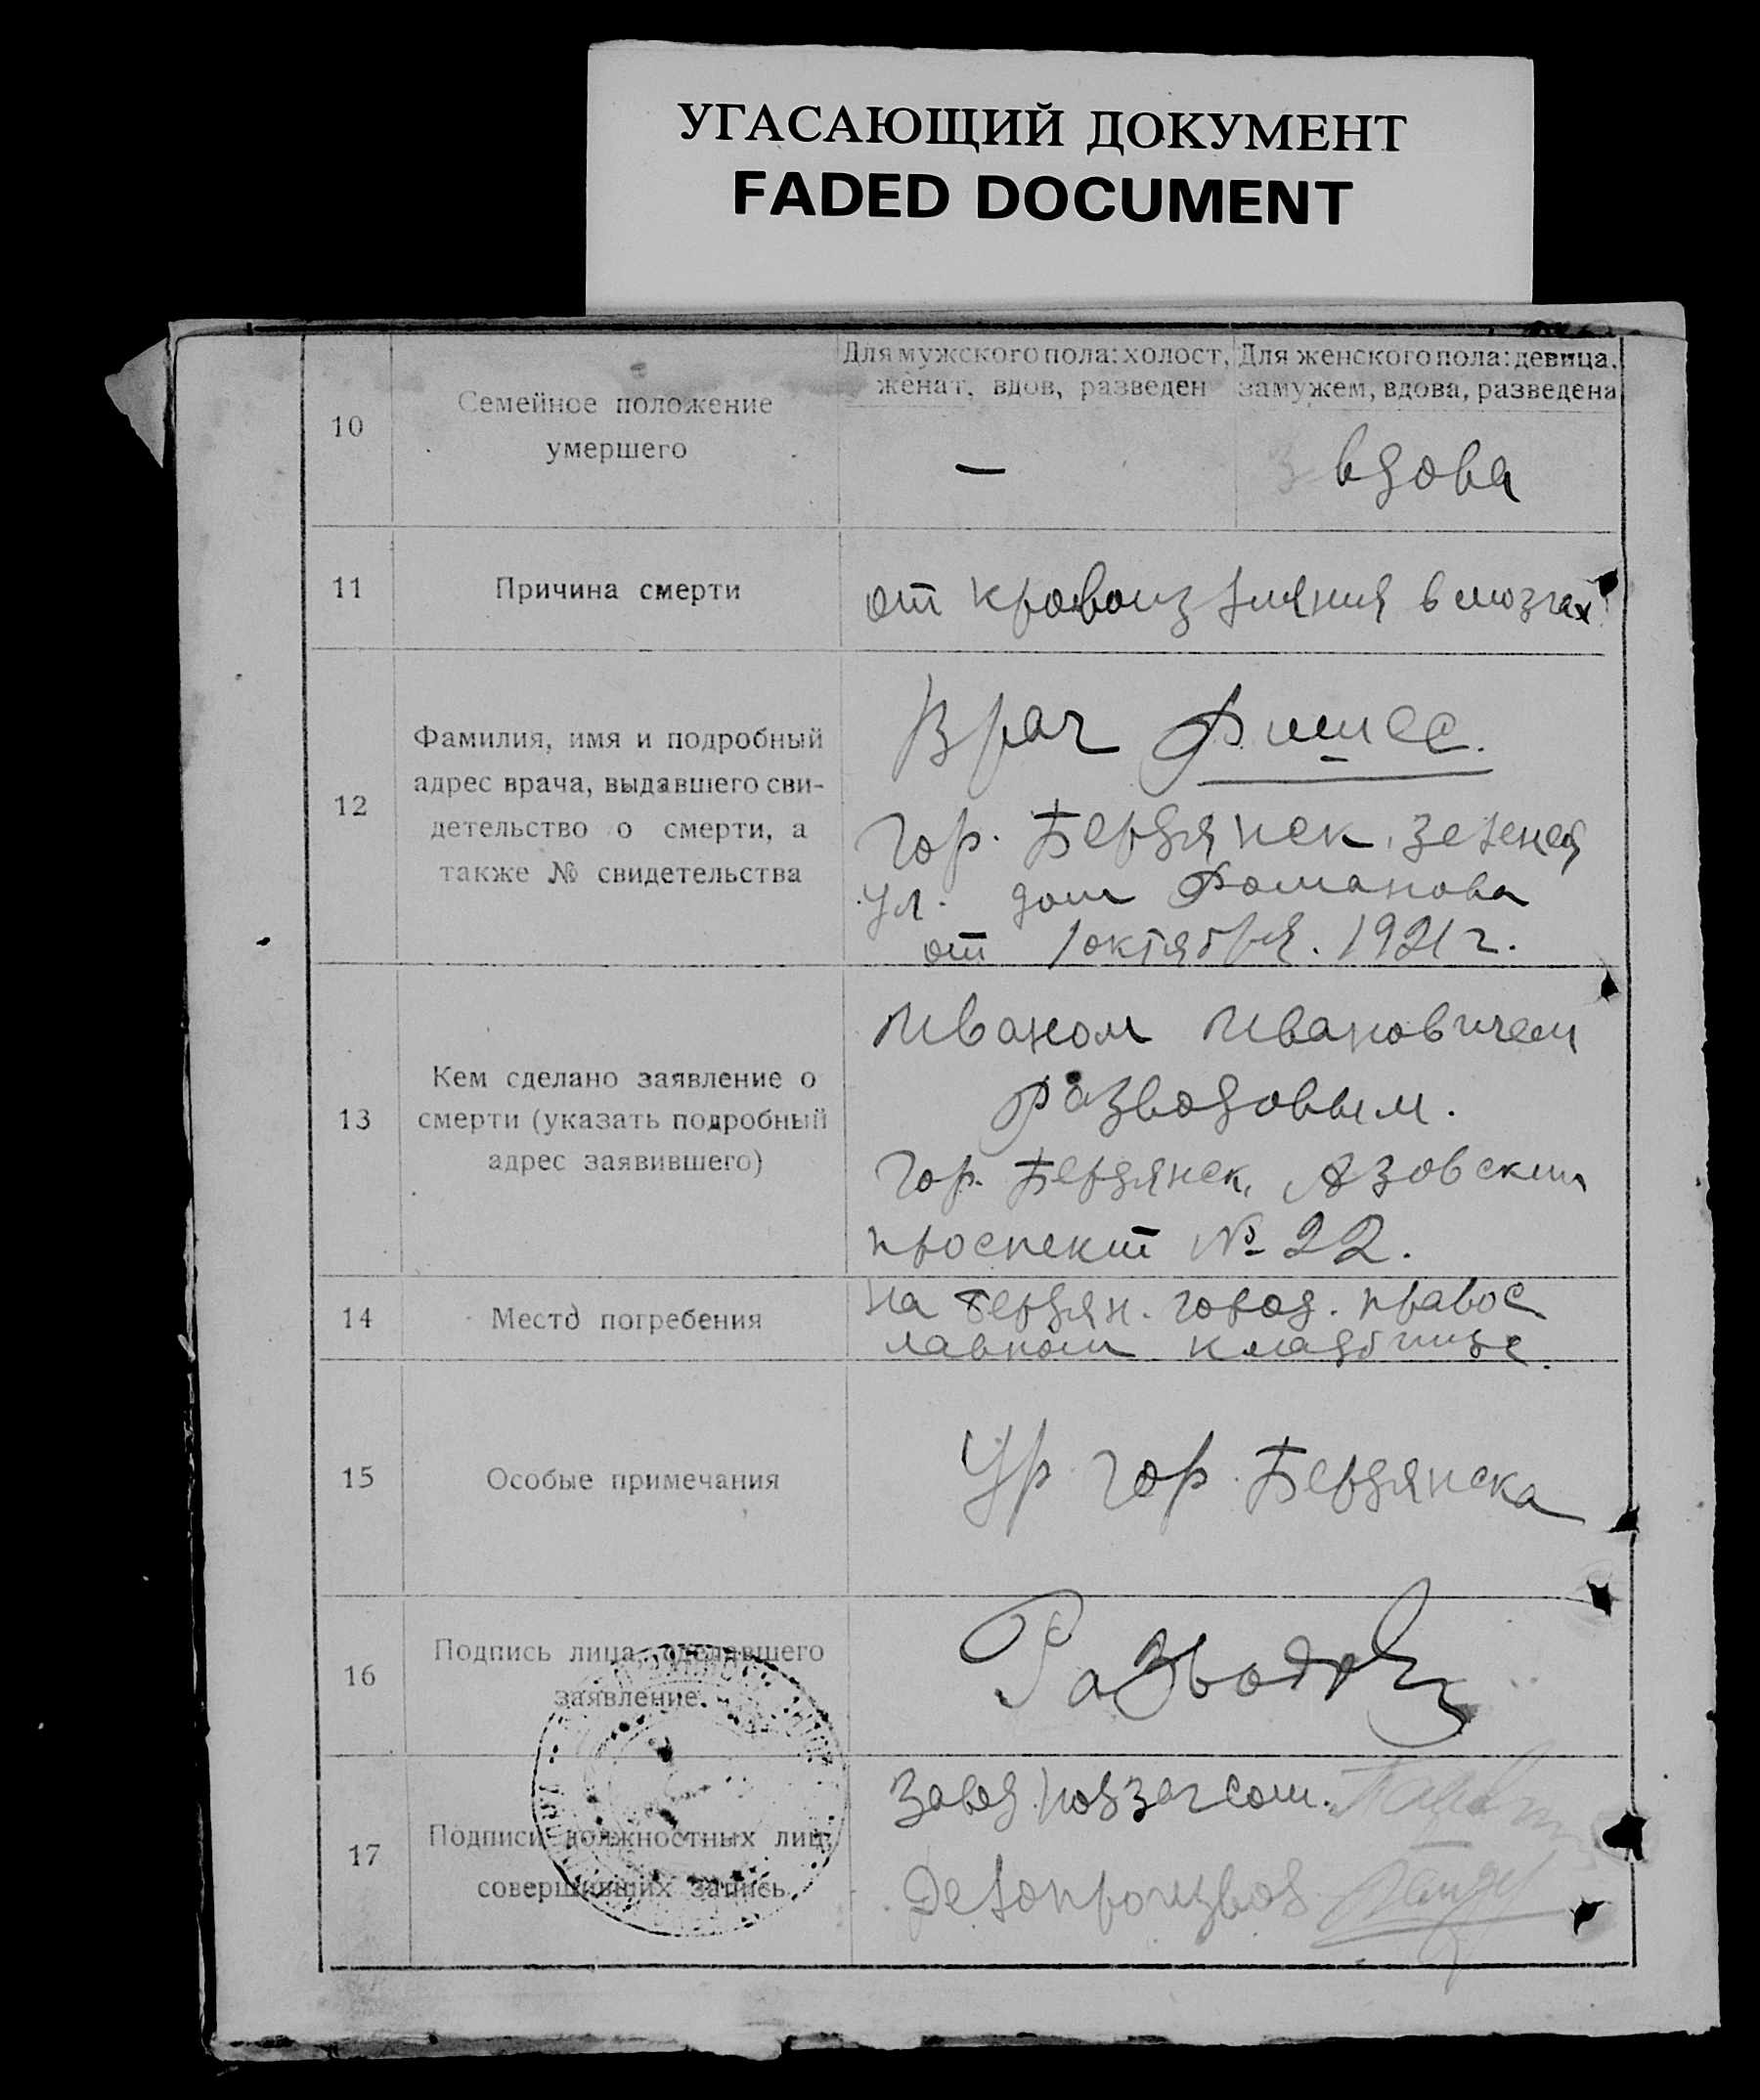 УГАСАЮЩИЙ ДОКУМЕНТ
FADED DOCUMENT
10
Семейное положение
умершего
Для мужского пола: холост,
женат, вдов, разведен
Для женского пола: девица,
замужем, вдова, разведена
—
вдова
11
Причина смерти
от кровоизлияния в мозгах
12
Фамилия, имя и подробный
адрес врача, выдавшего сви-
детельство о смерти, а
также № свидетельства
Врач
Гор. Бердянск, зеленая
ул. дом Романова
от 1 октября. 1921 г.
13
Кем сделано заявление о
смерти (указать подробный
адрес заявившего)
Иваном Ивановичем
Разводовым.
Гор. Бердянск, Азовский
проспект № 22.
14
Место погребения
на бердян. город. правос
лавном кладбище.
15
Особые примечания
Ур. гор. Бердянска
16
Подпись лица, сделавшего
заявление.
Разводов
17
Подписи должностных лиц,
совершивших запись.
Завед. подзагсом.
Делопроизвод